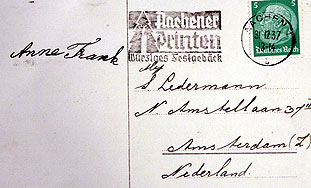 Aachener
Printen
Würziges Festgebäck
AACHEN 1
31.12.37
5
5
Deutsches Reich
Anne Frank
S. Ledermann
N. Amstellaan 37
Amsterdam (Z)
Nederland.